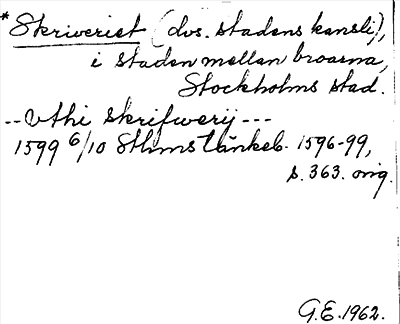 *Skriveriet (dvs. stadens kansli),
i staden mellan broarna,
Stockholms stad.
-- Vthi skrifwerij ---
1599 6/10 Sthms tänkeb. 1596-99,
s. 363. orig.
G.E. 1962.